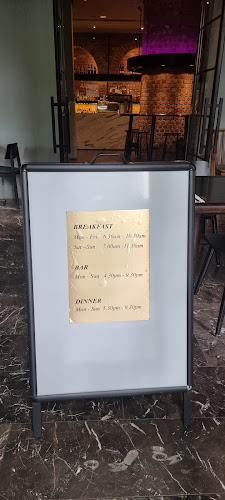 BREAKFAST
Mon - Fri 6.30am - 10.30am
Sat -Sun 7.00am -11.00am
BAR
Mon - Sun 4.30pm - 9.30pm
DINNER
Mon - Sun 5.30pm - 9.30pm